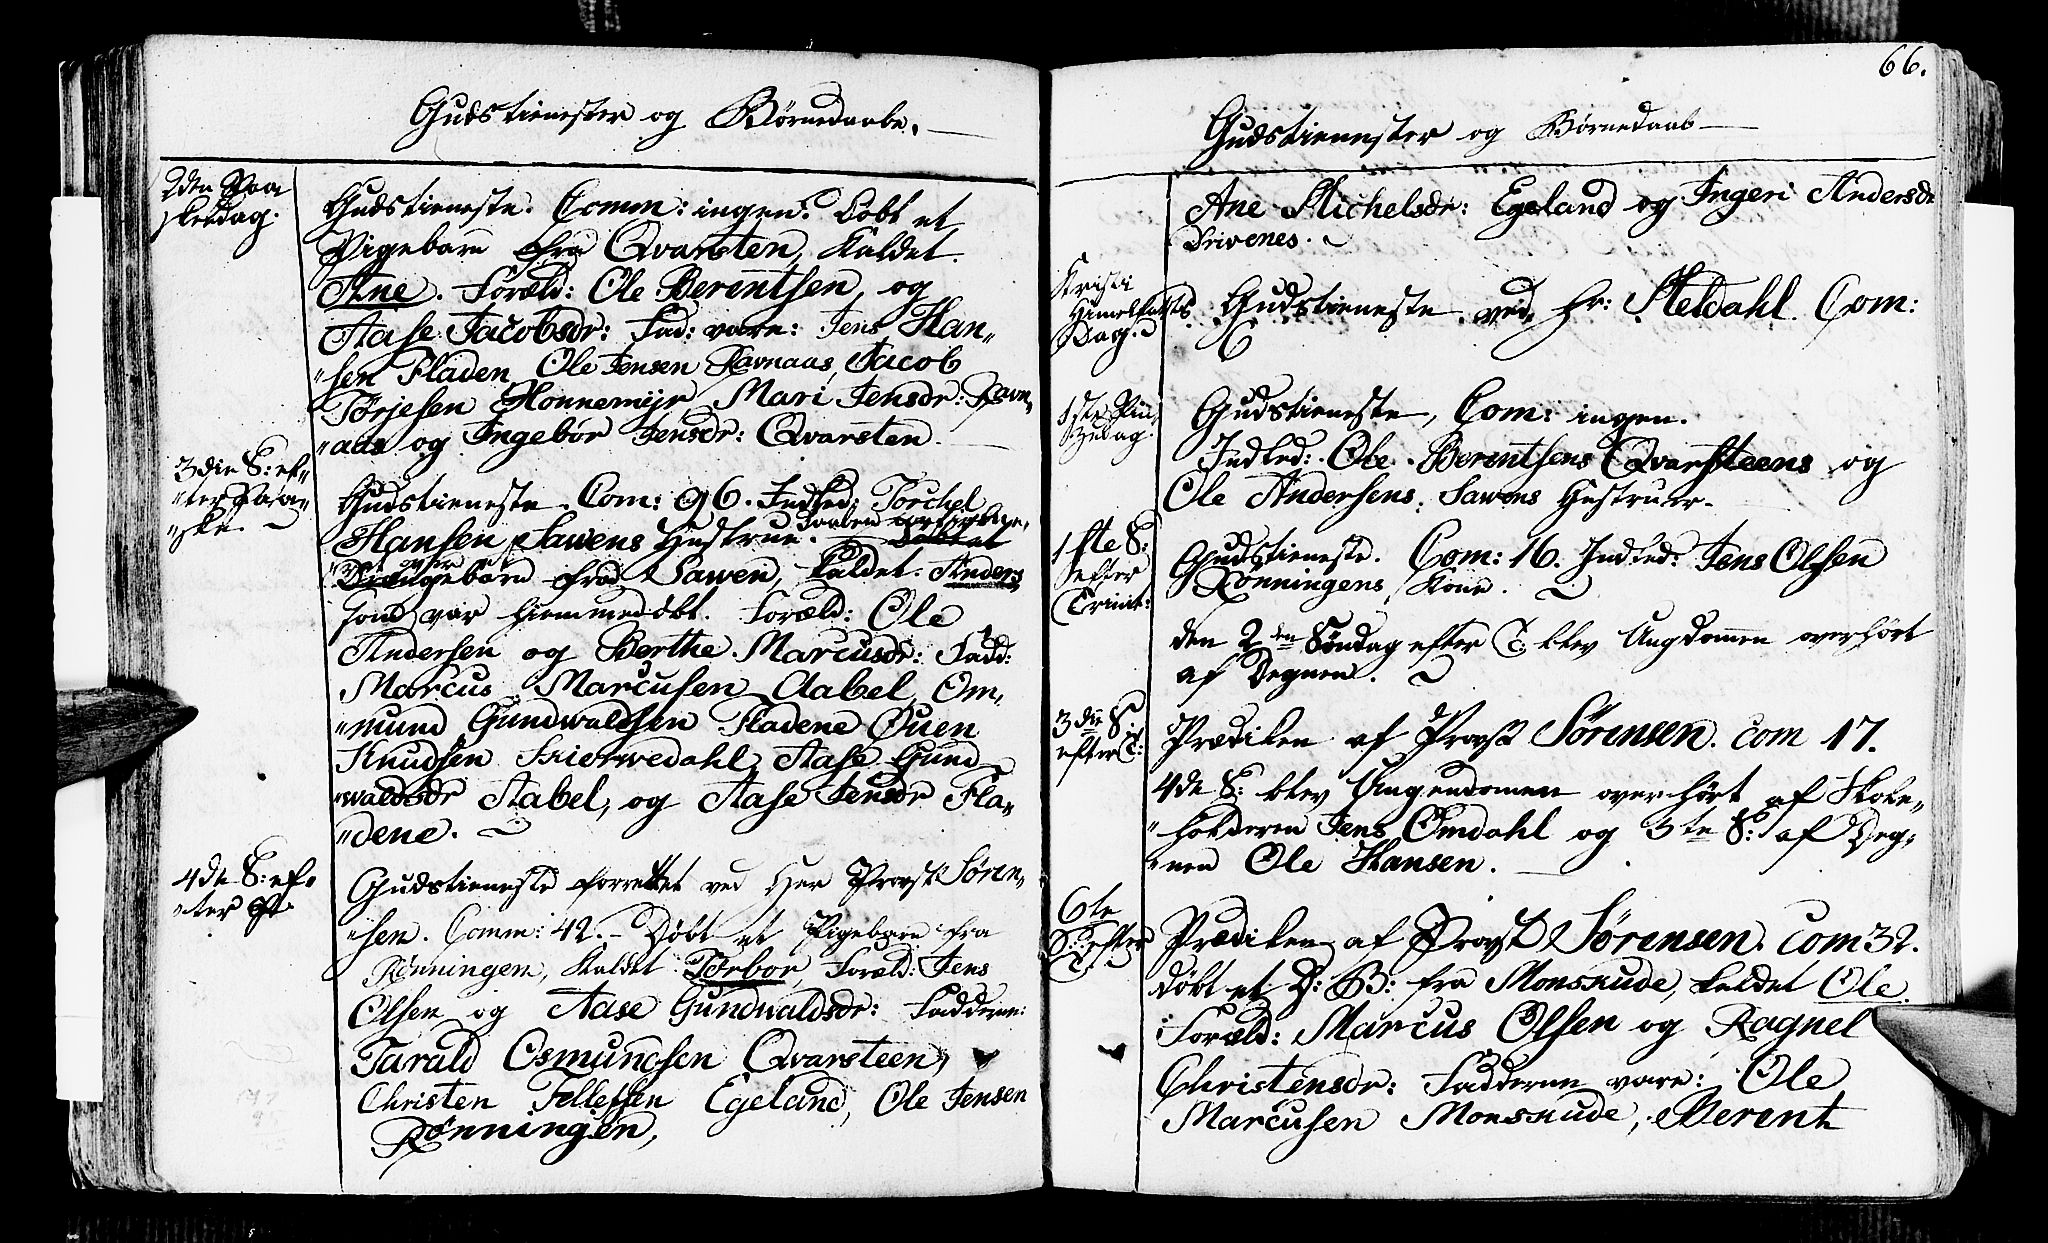 Gudstienester og Børnedaabe.
2den Paa
skedag.
Gudstieneste. Comm: ingen. Døbt et
Pigebarn fra Qvarsten, kaldet
Ane. Foræld: Ole Berentsen, og
Aase Jacobsdr: Fad: vare: Jens Han„
„sen Fladen, Ole Jensen Ravnaas, Jacob
Tørjesen Honnemyr, Mari Jensdr: Ravn„
„aas og Ingebor Jensdr: Qvarsten.
3die S: ef„
„ter Paa„
„ske.
Gudstieneste. Com: 96. Indled: Torchel
Hansen Sawens Hustrue. Døbt et
Drengebarn fra Sawen, kaldet Anders
som var hiemmedøbt. Foræld: Ole
Andersen og Berthe Marcusdr: Fadd:
Marcus Marcusen Aabel, Om„
„mund Gundwaldsen Fladene Ouen
Knudsen Skierwedahl, Aase Gund
„waldsdr Aabel, og Aase Jensdr Fla„
„dene.
4de S: ef„
„ter P:
Gudstieneste forrettet ved Her Provst Søren„
„sen. Comm: 42. Døbt et Pigebarn fra
Rønningen, kaldet Torbor, Foræld: Jens
Olsen og Aase Gundwaldsdr: Fadderne:
Tarald Osmundsen Qvarsteen,
Christen Tellefsen Egeland, Ole Jensen
Rønningen,
66.
Gudstienester og Børnedaab
Ane Michelsdr: Egeland og Ingeri Andersdr
Drivenes.
Kristi
Himmelfarts
Dag.
Gudstieneste ved Hr: Meldahl. Com:
1ste Pin„
zedag.
Gudstieneste, Com: ingen.
Indled: Ole Berentsens Qvarsteens og
Ole Andersens Sawens Hustruer.
1ste S:
efter
Trinit:
Gudstieneste. Com: 16. Indled: Jens Olsen
Rønningens Kone.
den 2den Søndag efter T: blev Ungdommen overhørt
af Degnen.
3die S:
efter T:
Prædiken af Provst Sørensen. Com 17.
4de S: blev Ungdommen overhørt af Skole„
„holderen Jens Omdahl og 5te S: af Deg„
„nen Ole Hansen.
6te
S: efter
T:
Prædiken af Provst Sørensen. Com 32.
Døbt et D: B: fra Monskude, kaldet Ole.
Foræld: Marcus Olsen og Ragnel
Christensdr: Fadderne vare: Ole
Marcusen Monskude, Berent